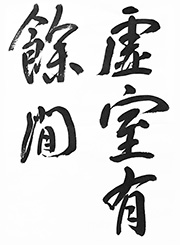 虛室有
餘閒